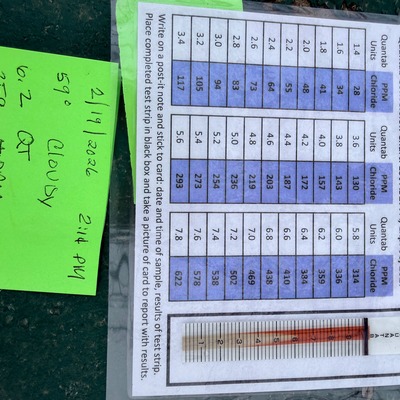 Quantab PPM Quantab PPM Quantab PPM
Units Chloride Units Chloride Units Chloride
1.4 28 3.6 130 5.8 314
1.6 34 3.8 143 6.0 336
1.8 41 4.0 157 6.2 359
2.0 48 4.2 172 6.4 384
2.2 55 4.4 187 6.6 410
2.4 64 4.6 203 6.8 438
2.6 73 4.8 219 7.0 469
2.8 83 5.0 236 7.2 502
3.0 94 5.2 254 7.4 538
3.2 105 5.4 273 7.6 578
3.4 117 5.6 293 7.8 622
Write on a post-it note and stick to card: date and time of sample, results of test strip.
Place completed test strip in black box and take a picture of card to report with results.
9
8
7
6
5
4
3
2
1
2/19/2026 2:14 PM
59° Cloudy
6.2 QT